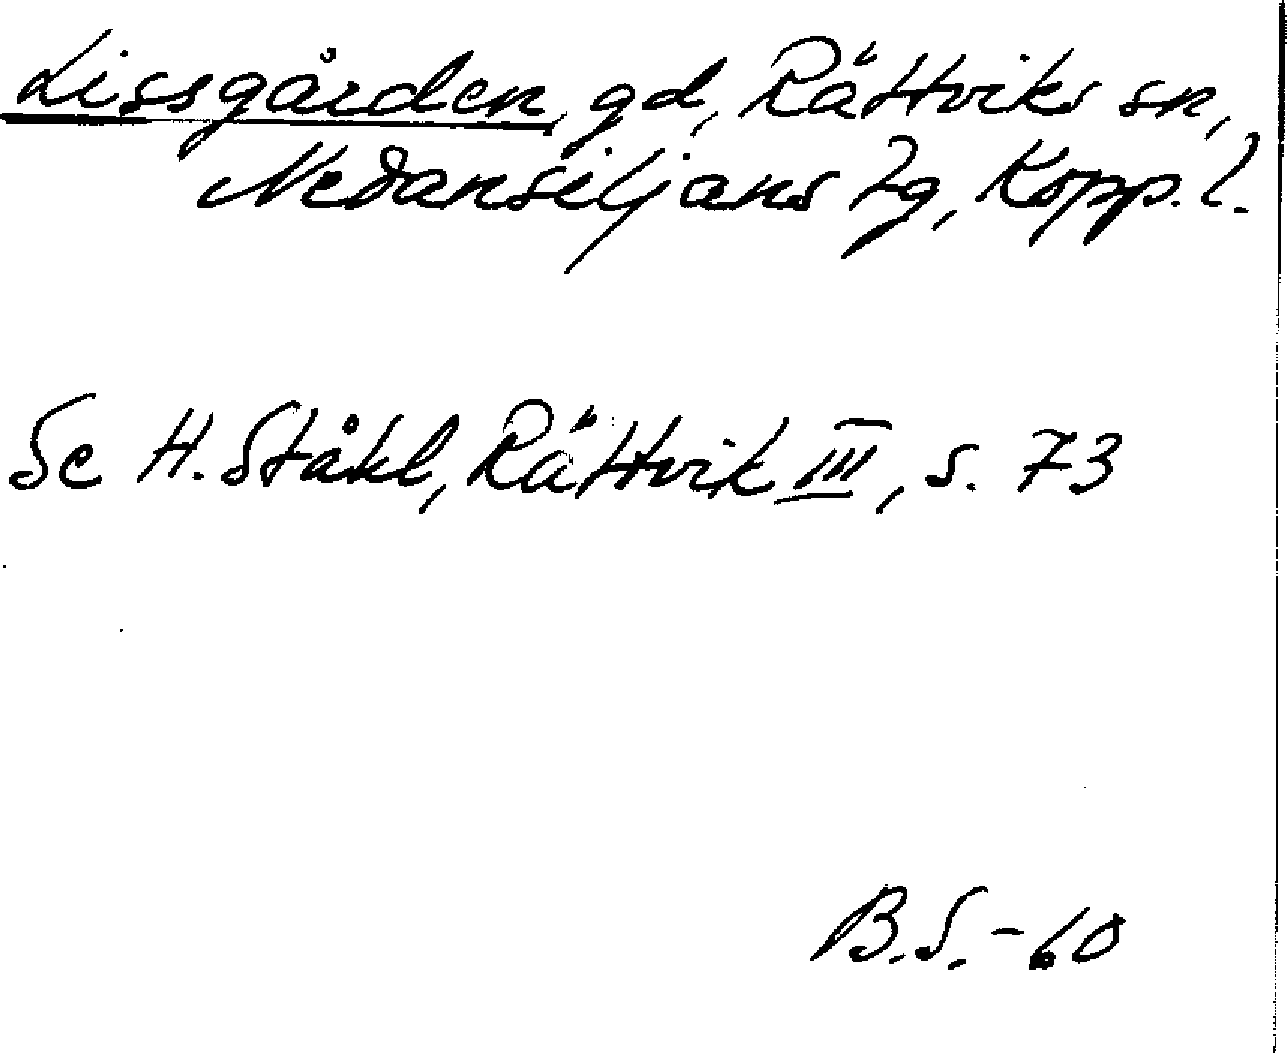 Lissgården, gd, Rättviks sn,
Nedansiljans tg, Kopp. l.
Se H. Ståhl, Rättvik III, s. 73
B.S.-60